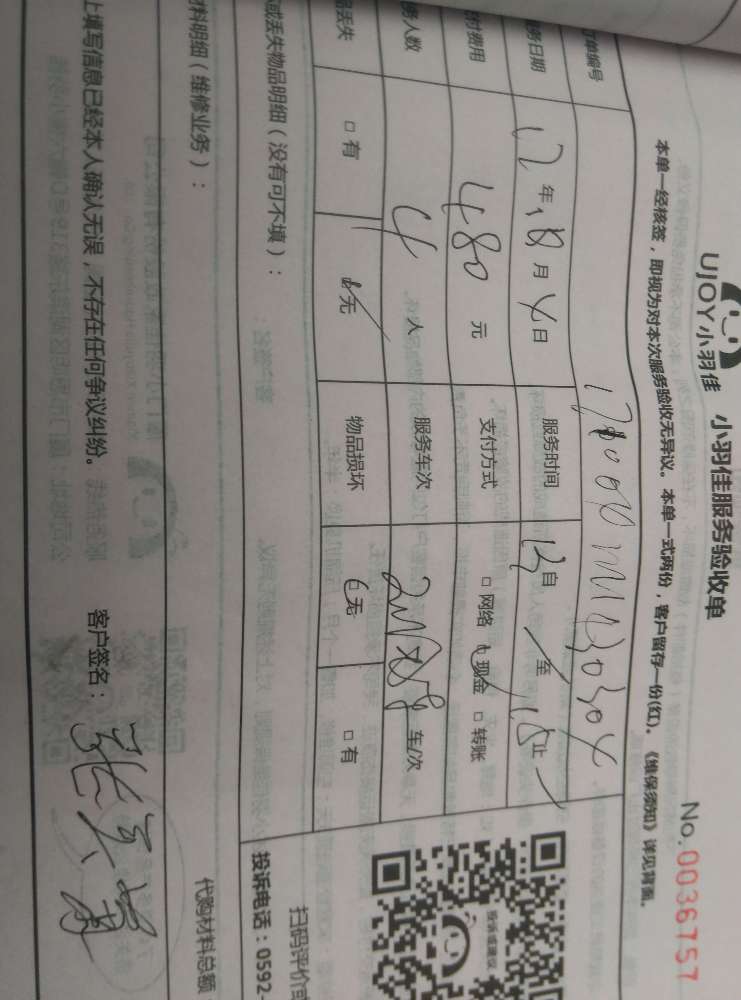 UJOY小羽佳 小羽佳服务验收单
No.0036757
本单一经核签，即视为对本次服务验收无异议。本单一式两份，客户留存一份(红)。《维保须知》详见背面。
单编号
务日期 17年 10月 4日 服务时间 自 至 15 止
付费用 480 元 支付方式 □网络 □现金 □转账
务人数 4 人 服务车次 车/次
品丢失 □有 □无 物品损坏 □无 □有
或丢失物品明细（没有可不填）：
投诉或建议
扫码评价或
投诉电话：0592-
料明细（维修业务）：
代购材料总额
上填写信息已经本人确认无误，不存在任何争议纠纷。 客户签名：